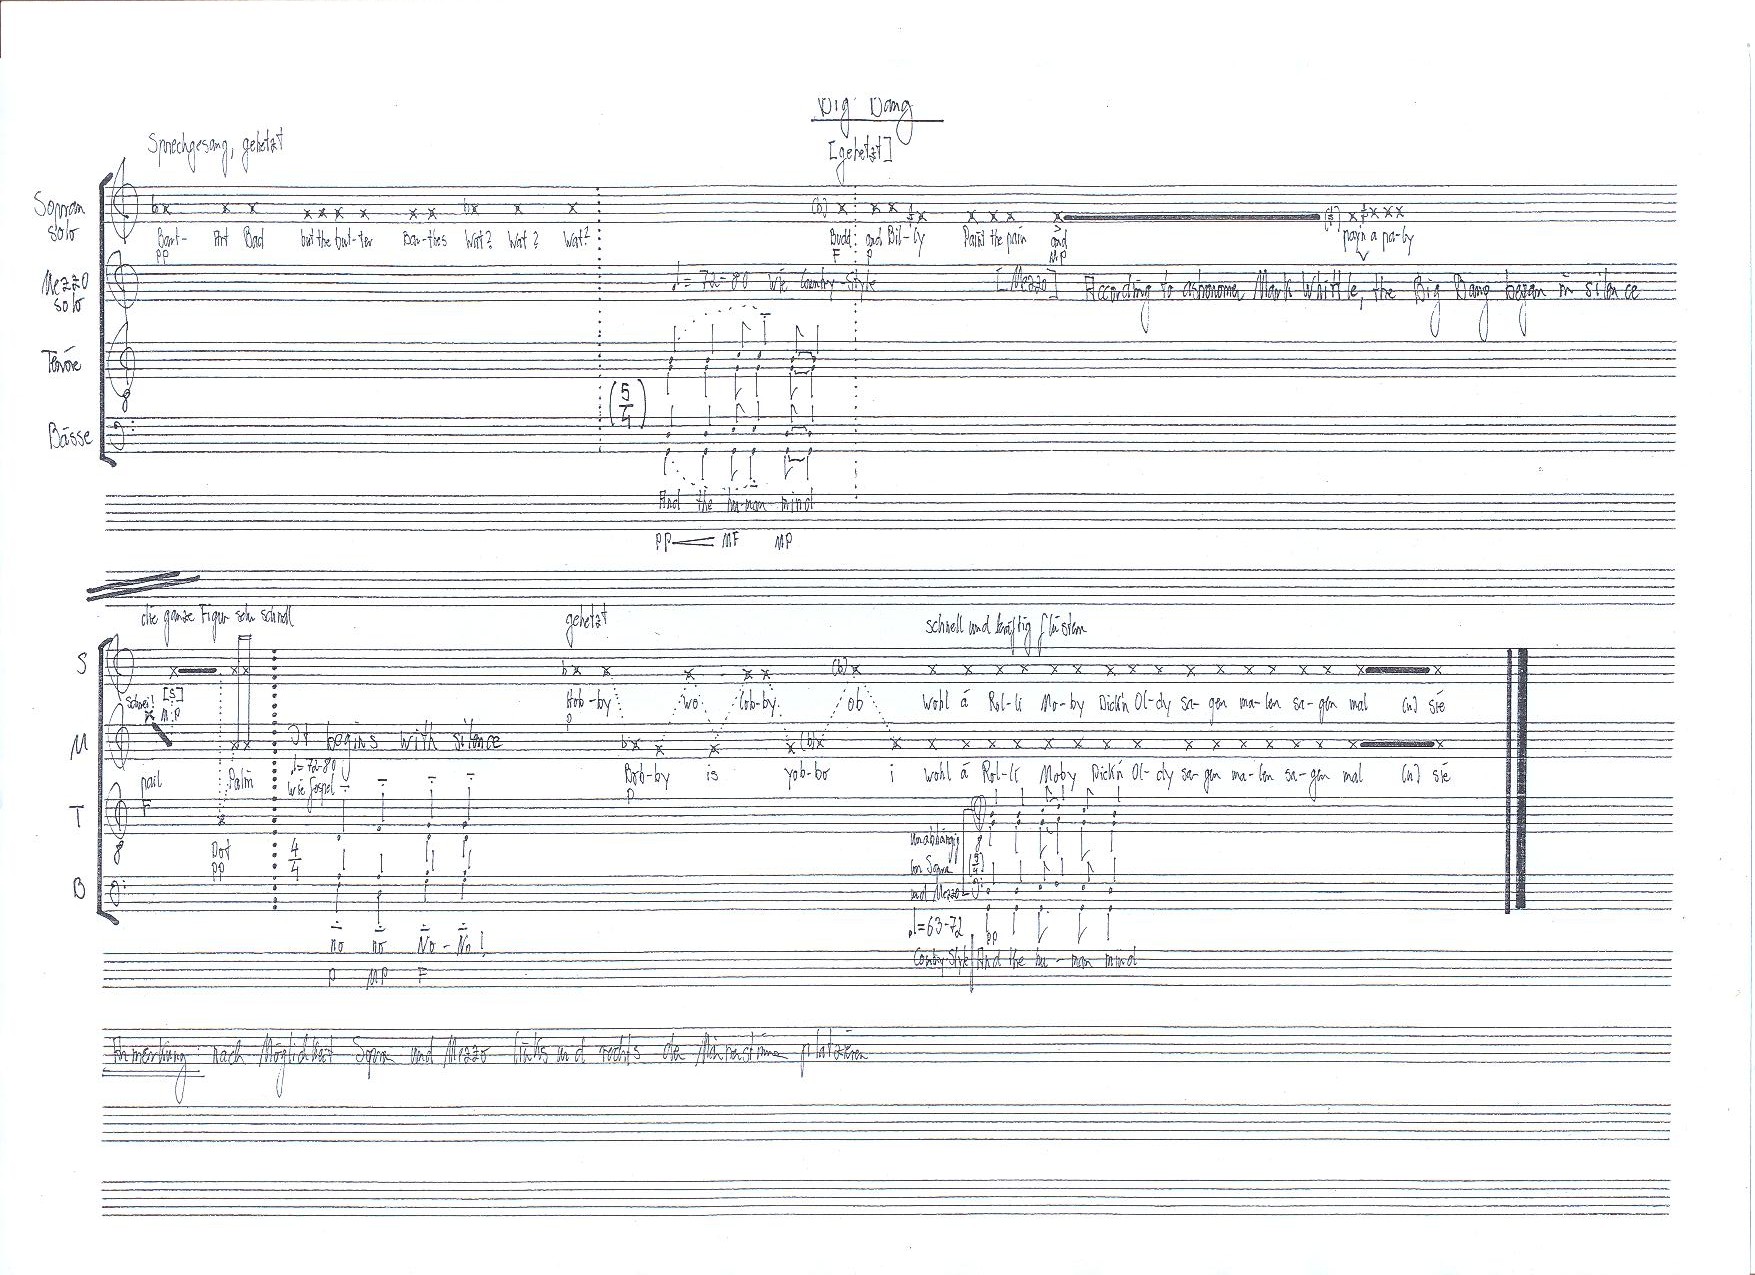 Big Bang
[gehetzt]
Sprechgesang, gehetzt
Sopran solo
Bart- Art Bad but the but-ter Bar-thes Wat? Wat? Wat? Budd: and Bil-ly Paint the pain and pay'n a pa-by
PP F P MP
Mezzo solo
♩= 72-80 wie Country-Style [Mezzo] According to astronomer Mark Whittle, the Big Bang began in silence
Tenöre
(5/4)
Bässe
And the hu-man mind
PP MF MP
die ganze Figur sehr schnell gehetzt schnell und kräftig flüstern
S
Schrei! [S] Hob-by wo Lob-by ob wohl á Rol-li Mo-by Dick'n Ol-dy sa-gen ma-len sa-gen mal (n) sie
MP P
M
It begins with silence
♩=72-80
wie Gospel
pail Palm Bob-by is yob-bo i wohl á Rol-li Moby Dick'n Ol-dy sa-gen ma-len sa-gen mal (n) sie
F P
T
Dot
PP
4/4
unabhängig
von Sopran
und Mezzo
B
♩=63-72
PP
no no No-No!
Country-Style And the hu-man mind
P MP F
Anmerkung: nach Möglichkeit Sopran und Mezzo links und rechts der Männerstimmen platzieren